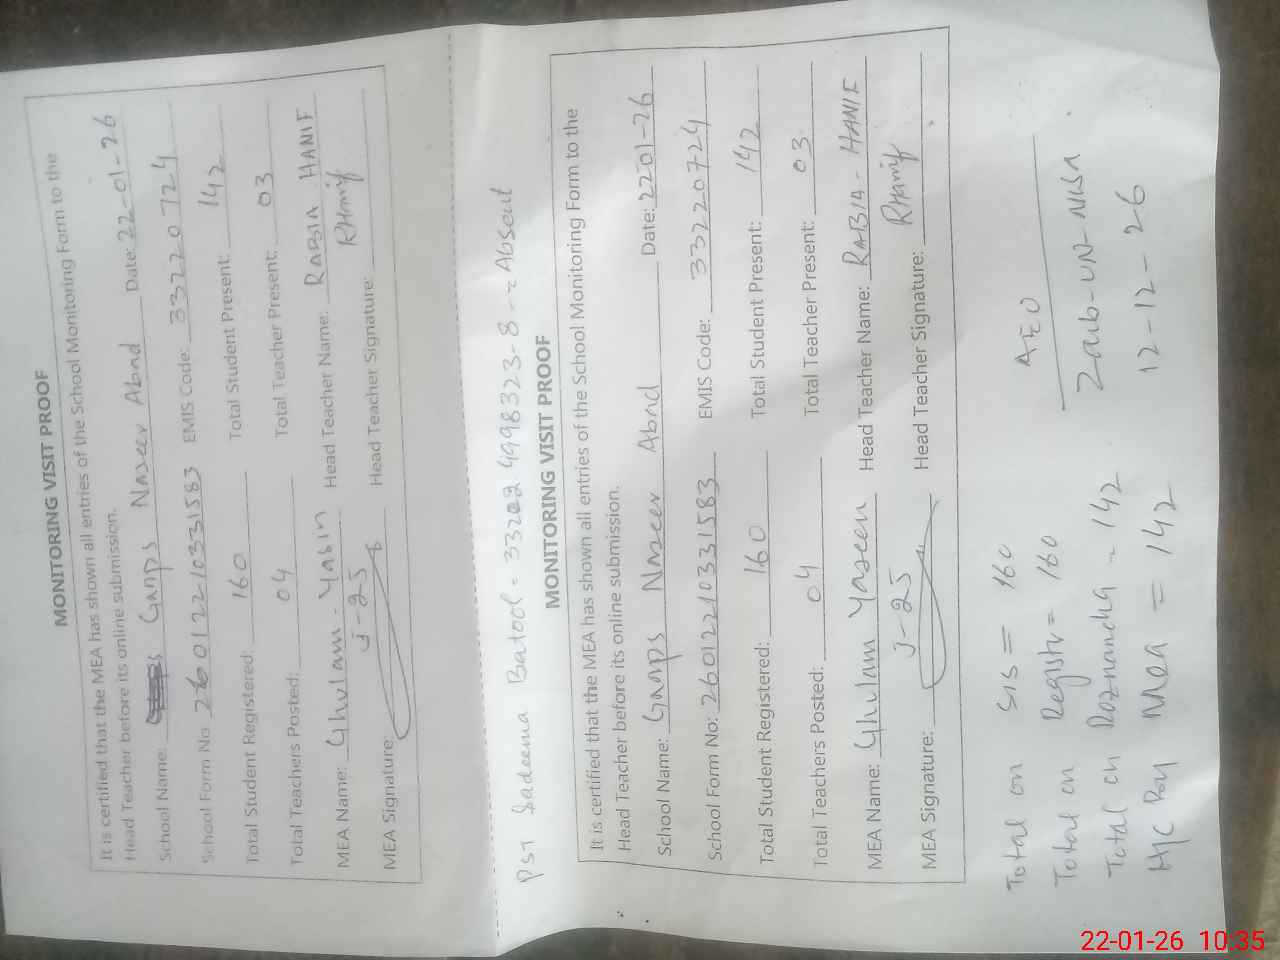 MONITORING VISIT PROOF
It is certified that the MEA has shown all entries of the School Monitoring Form to the
Head Teacher before its online submission.
School Name: GGMPS Naseer Abad Date: 22-01-26
School Form No: 26012210331583 EMIS Code: 33220724
Total Student Registered: 160 Total Student Present: 142
Total Teachers Posted: 04 Total Teacher Present: 03
MEA Name: Ghulam - Yasin Head Teacher Name: RABIA HANIF
MEA Signature: J-25 Head Teacher Signature: RHanif
PST Sadeema Batool = 33202 4998323-8 -= Absent
MONITORING VISIT PROOF
It is certified that the MEA has shown all entries of the School Monitoring Form to the
Head Teacher before its online submission.
School Name: GGMPS Naseer Abad Date: 2201-26
School Form No: 26012210331583 EMIS Code: 33220724
Total Student Registered: 160 Total Student Present: 142
Total Teachers Posted: 04 Total Teacher Present: 03
MEA Name: Ghulam Yaseen Head Teacher Name: RABIA - HANIF
MEA Signature: J-25 Head Teacher Signature: RHanif
Total on SIS = 160
Total on Registr = 160
Total on Roznamcha - 142
H/C By Mea = 142
AEO
Zaib-UN-NISA
12-12-26
22-01-26 10:35